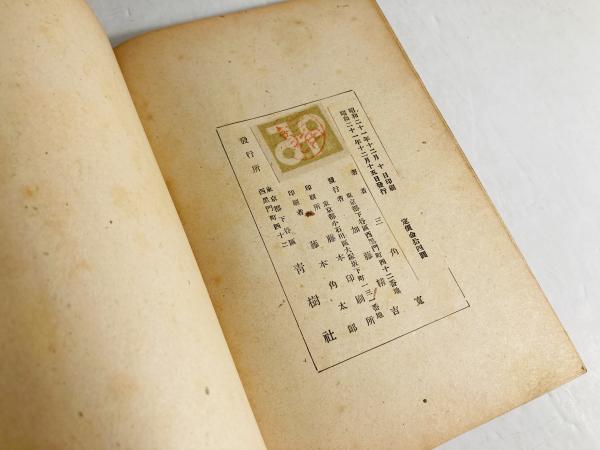 昭和二十一年十二月十日印刷
昭和二十一年十二月十五日發行
定價金拾四圓
著者 三角寛
東京都下谷區西黑門町四十二番地
發行者 加藤精吉
東京都小石川區大塚坂下町一三一番地
印刷所 藤本印刷所
印刷者 藤本角太郎
東京都下谷區
西黑門町四十二
發行所 青樹社